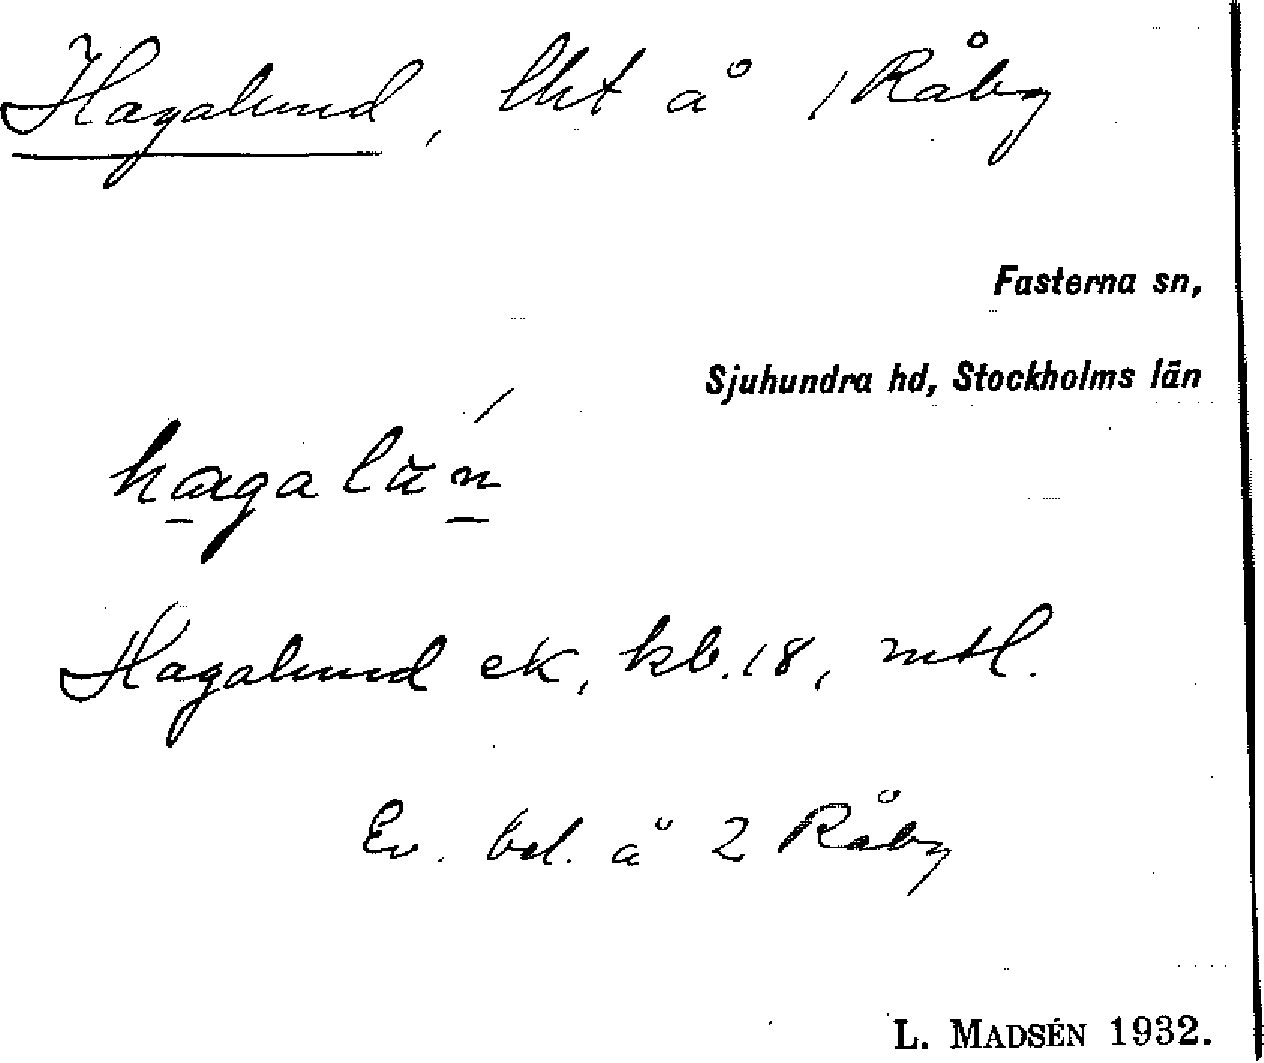 Hagalund, lht å 1 Råby
Fasterna sn,
Sjuhundra hd, Stockholms län
hagalún
Hagalund ek, kb. 18, mtl.
Ev. bel. å 2 Råby
L. MADSÉN 1932.